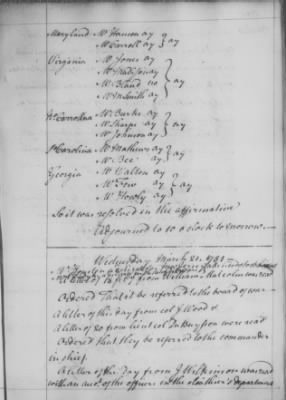 Maryland Mr Hanson ay } ay
Mr Carroll ay
Virginia Mr Jones ay } ay
Mr Madison ay
Mr Bland no
Mr M Smith ay
N Carolina Mr Burke ay } ay
Mr Sharpe ay
Mr Johnson ay
S Carolina Mr Mathews ay } ay
Mr Bee ay
Georgia Mr Walton ay } ay
Mr Few ay
Mr Howly ay
So it was resolved in the affirmative
Adjourned to 10 o Clock to Morrow
Wednesday March 21. 1781
A letter of from William Malcolm was read
Ordered That it be referred to the board of war
A letter of this day from col J Wood &
A letter of 20 from lieut col were read
Ordered that they be referred to the commander
in chief.
A letter of this day from J Wilkinson was read
with an acct. of the officers in the clothier's department